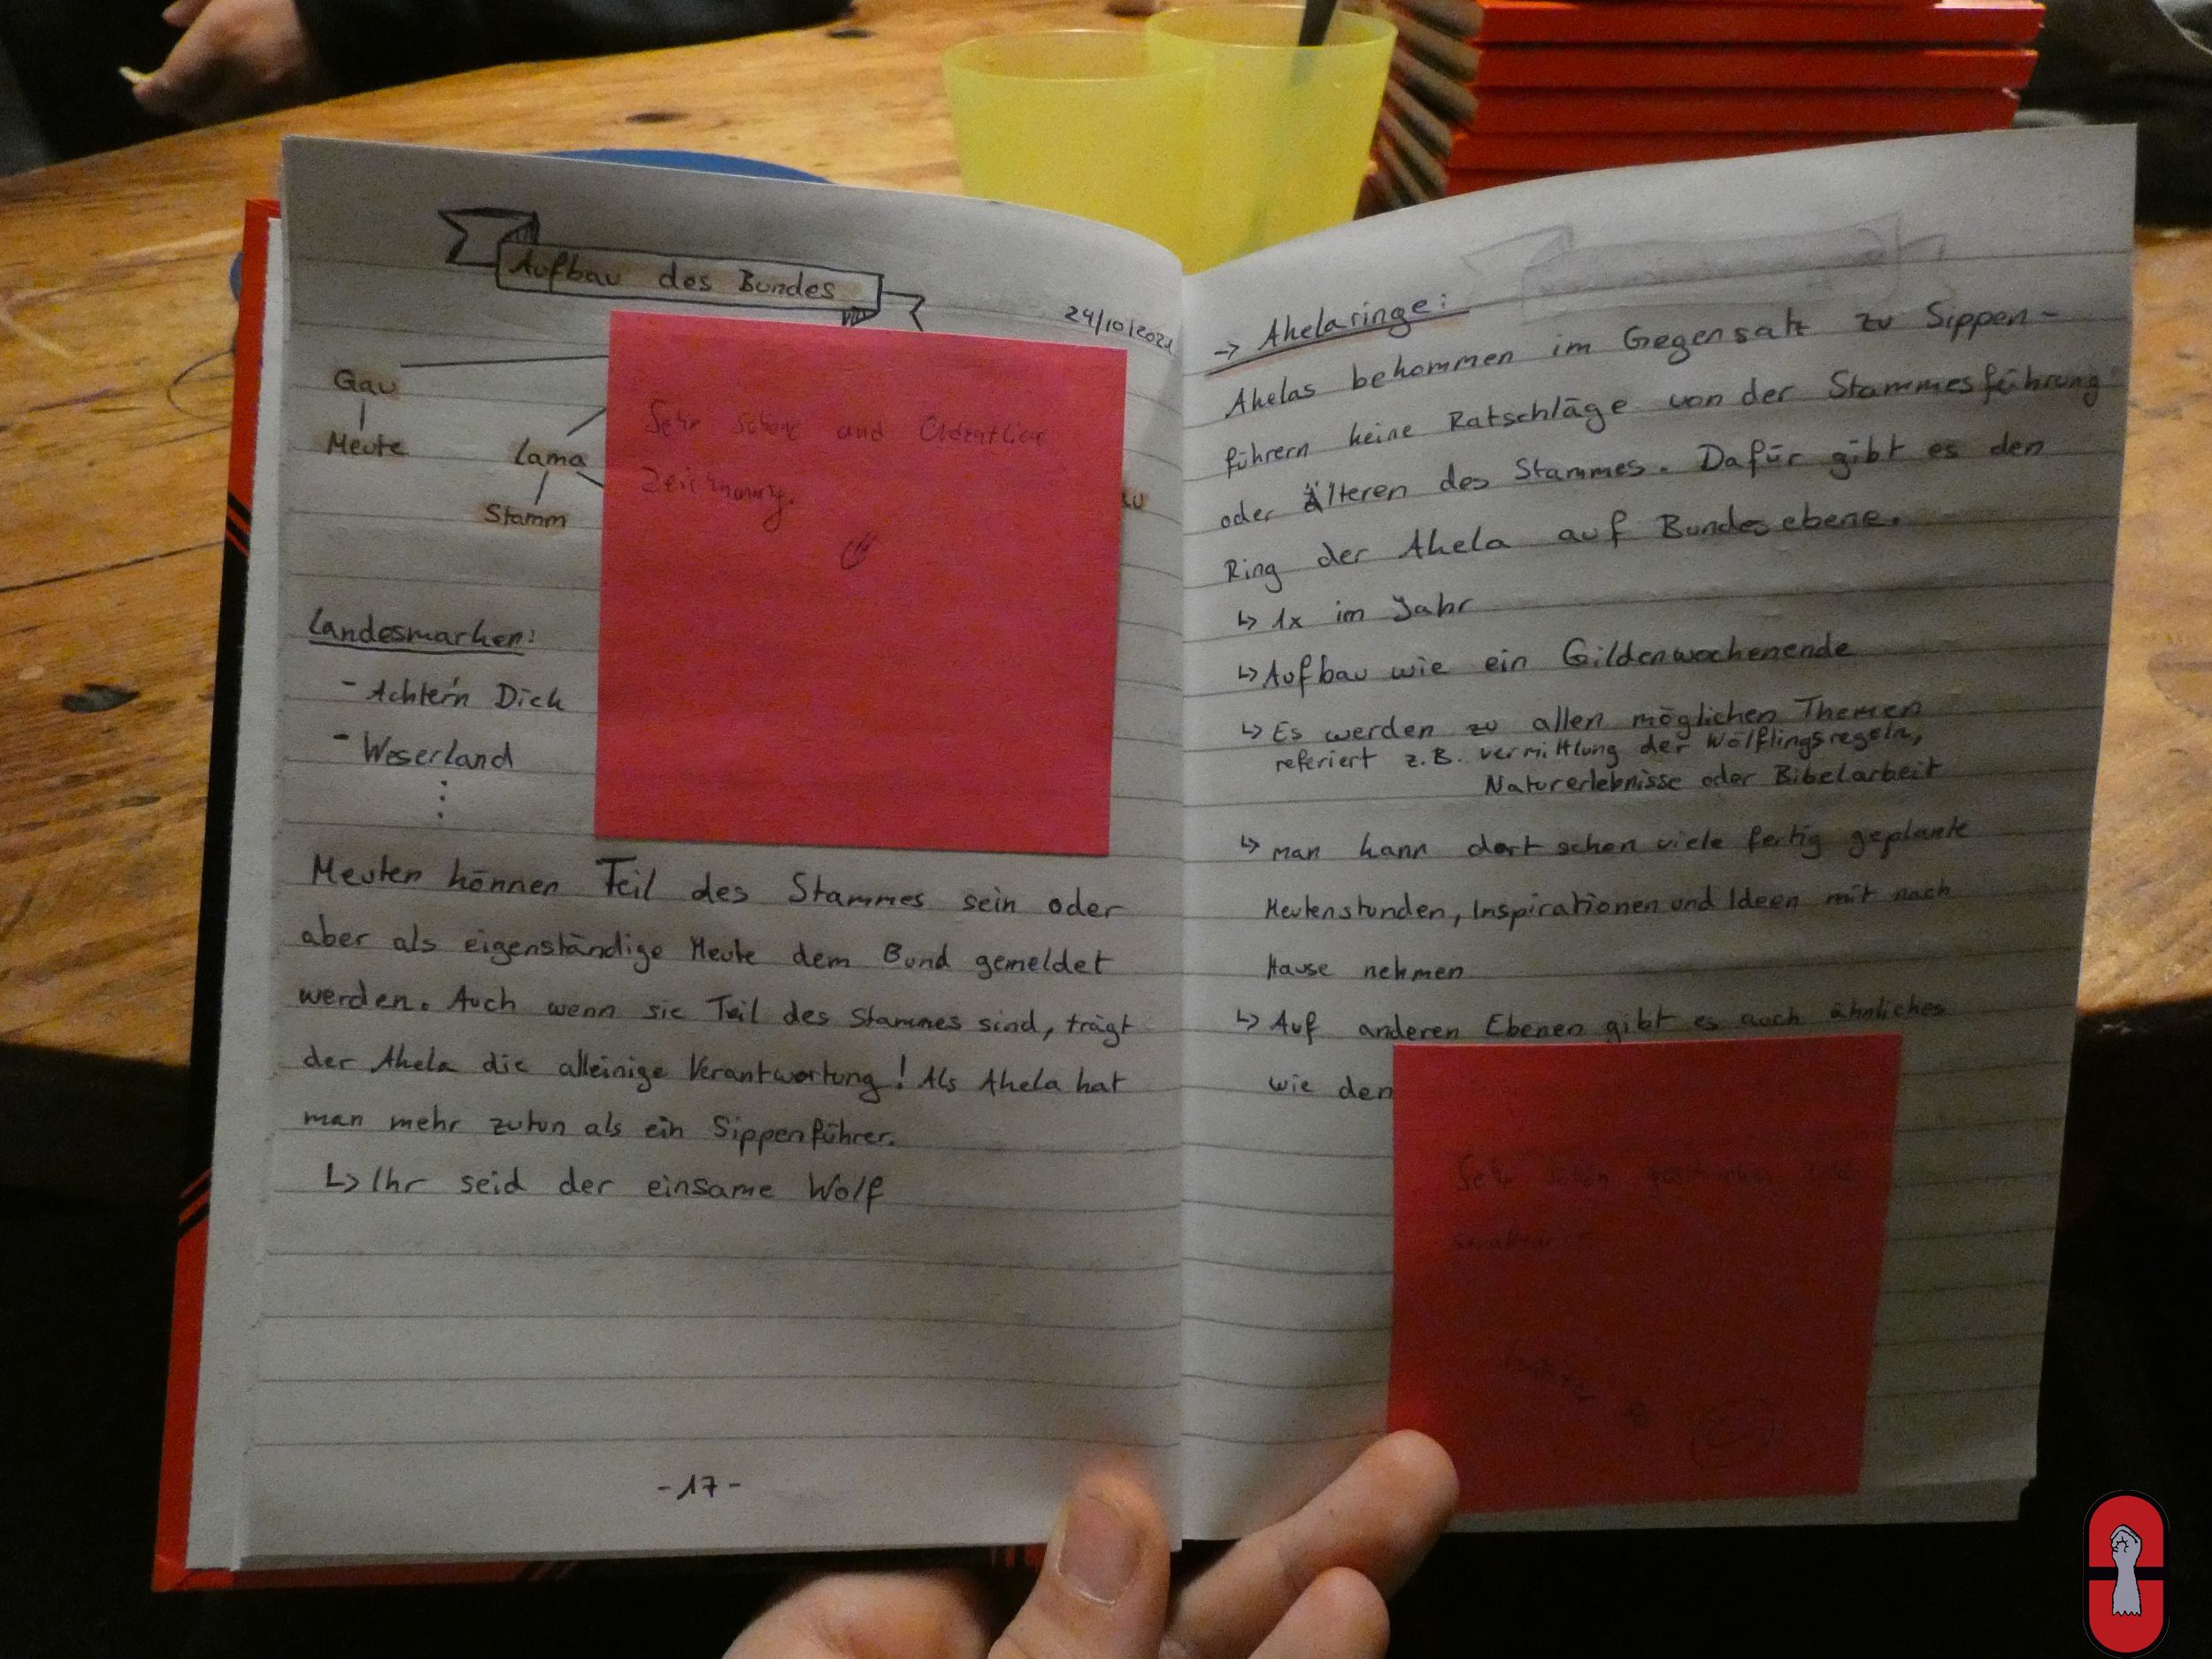 Aufbau des Bundes
24/10/2021
Gau
Meute
Lama
Stamm
Landesmarken:
- Achter'n Dich
- Weserland
Sehr schöne und Ordentliche
Zeichnung.
Meuten können Teil des Stammes sein oder
aber als eigenständige Meute dem Bund gemeldet
werden. Auch wenn sie Teil des Stammes sind, trägt
der Akela die alleinige Verantwortung! Als Akela hat
man mehr zutun als ein Sippenführer.
↳ Ihr seid der einsame Wolf
-17-
→ Akelaringe:
Akelas bekommen im Gegensatz zu Sippen-
führern keine Ratschläge von der Stammesführung
oder Älteren des Stammes. Dafür gibt es den
Ring der Akela auf Bundesebene.
↳ 1x im Jahr
↳ Aufbau wie ein Gildenwochenende
↳ Es werden zu allen möglichen Themen
referiert z.B. vermittlung der Wölflingsregeln,
Naturerlebnisse oder Bibelarbeit
↳ man kann dort schon viele fertig geplante
Meutenstunden, Inspirationen und Ideen mit nach
Hause nehmen
↳ Auf anderen Ebenen gibt es auch ähnliches
wie den
Sehr schön